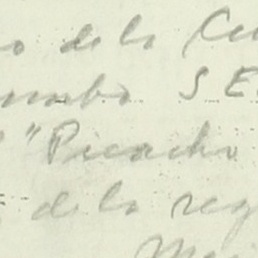 o de la Cu
rumbo SE
"Picacho
de la reg